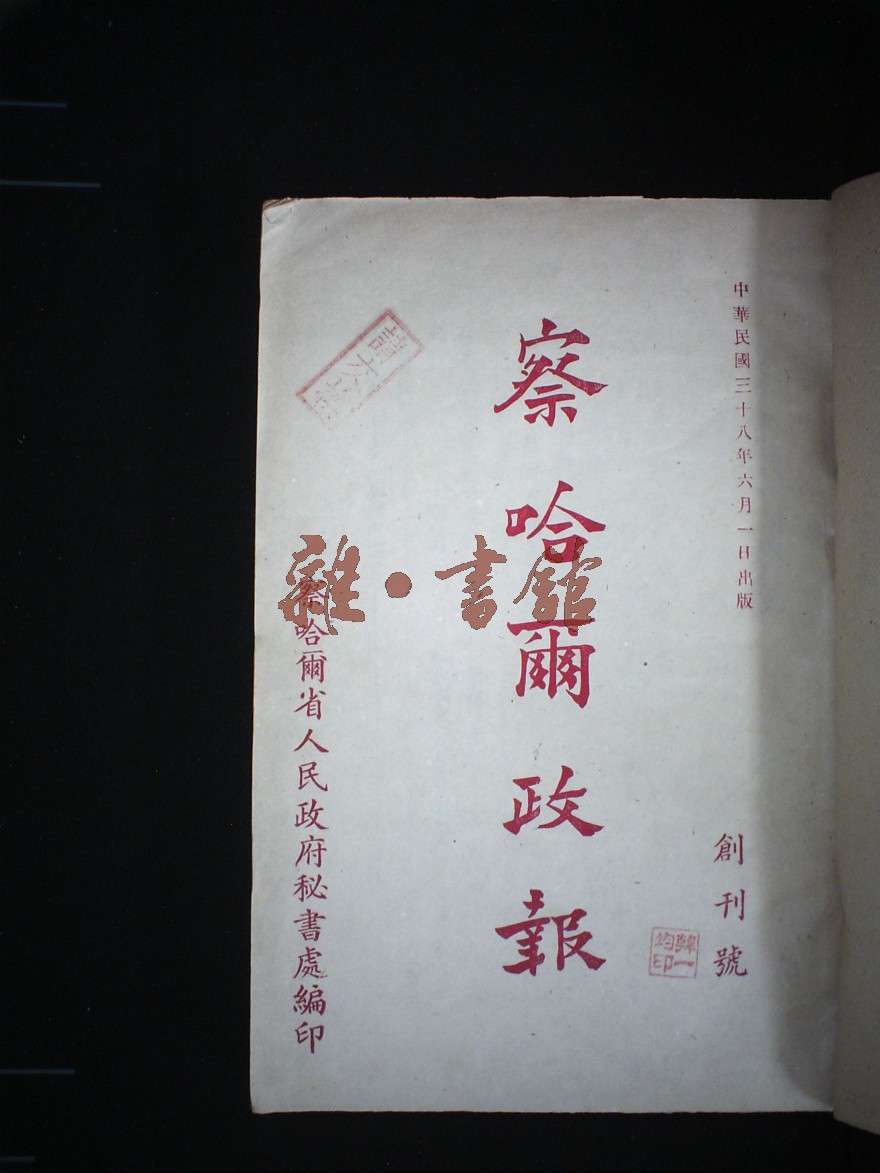 中華民國三十八年六月一日出版
創刊號
韓一
均印
察哈爾政報
察哈爾省人民政府秘書處編印
雜·書館